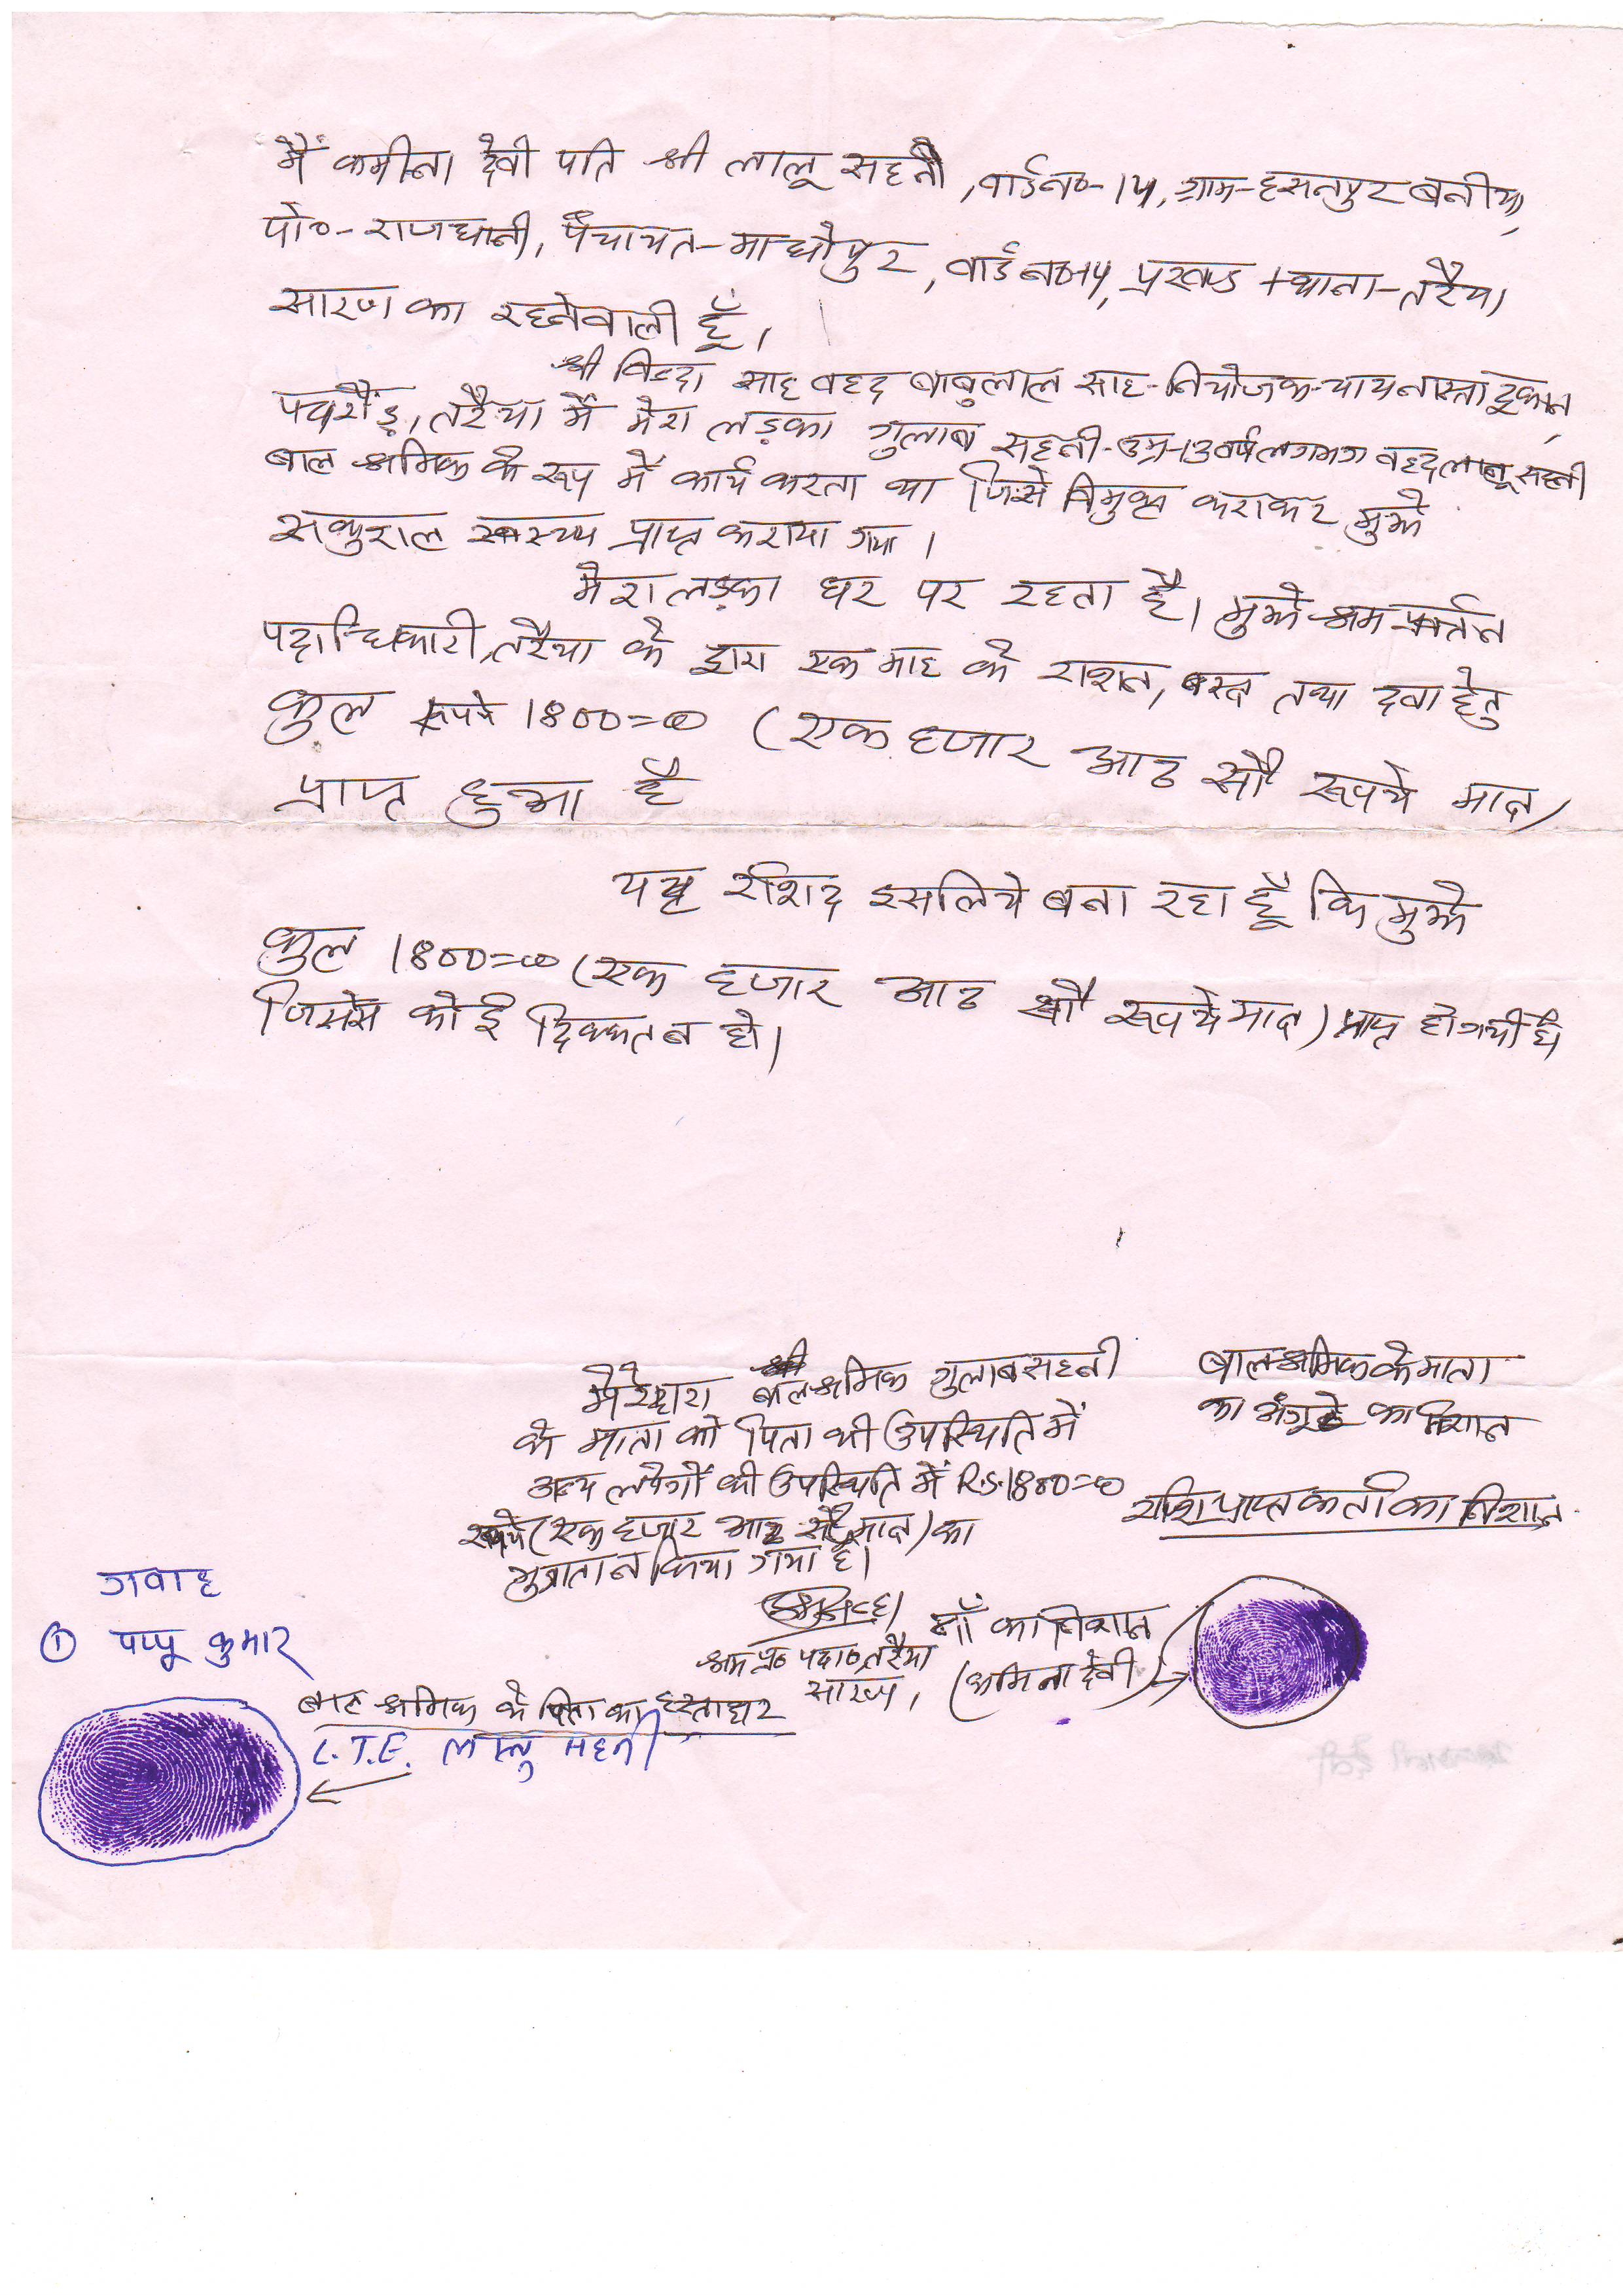 मैं कमीना देवी पति श्री लालू सहनी, वार्ड न०-14, ग्राम-हसनपुर बनीया,
पो०-राजधानी, पंचायत-माधोपुर, वार्ड न०14, प्रखण्ड + थाना-तरैया
सारण का रहनेवाली हूँ।
श्री साह वल्द बाबुलाल साह-नियोजक-चाय नास्ता दूकान,
पचरौड़, तरैया में मेरा लड़का गुलाब सहनी-उम्र-13 वर्ष लगभग वल्द लालू सहनी
बाल श्रमिक के रूप में कार्य करता था जिसे विमुक्त कराकर मुझे
सकुशल स्वस्थ्य प्राप्त कराया गया।
मेरा लड़का घर पर रहता है। मुझे श्रम प्रवर्तन
पदाधिकारी, तरैया के द्वारा एक माह के राशन, वस्त्र तथा दवा हेतु
कुल रूपये 1800=00 (एक हजार आठ सौ रूपये मात्र)
प्राप्त हुआ है
यह रशिद इसलिये बना रहा हूँ कि मुझे
कुल 1800=00 (एक हजार आठ सौ रूपये मात्र) प्राप्त हो गयी है
जिससे कोई दिक्कत न हो।
मेरे द्वारा बाल श्रमिक गुलाब सहनी
के माता को पिता की उपस्थिति में
अन्य लोगों की उपस्थिति में R.S.1800=00
रूपये (एक हजार आठ सौ मात्र) का
भुगतान किया गया है।
बाल श्रमिक के माता
का अंगूठे का निशान
राशि प्राप्तकर्ता का निशान
श्रम प्र० पदा०, तरैया
सारण,
माँ का निशान
(कमिना देवी)
गवाह
① पप्पू कुमार
बाल श्रमिक के पिता का हस्ताक्षर
L.T.E. लालु सहनी